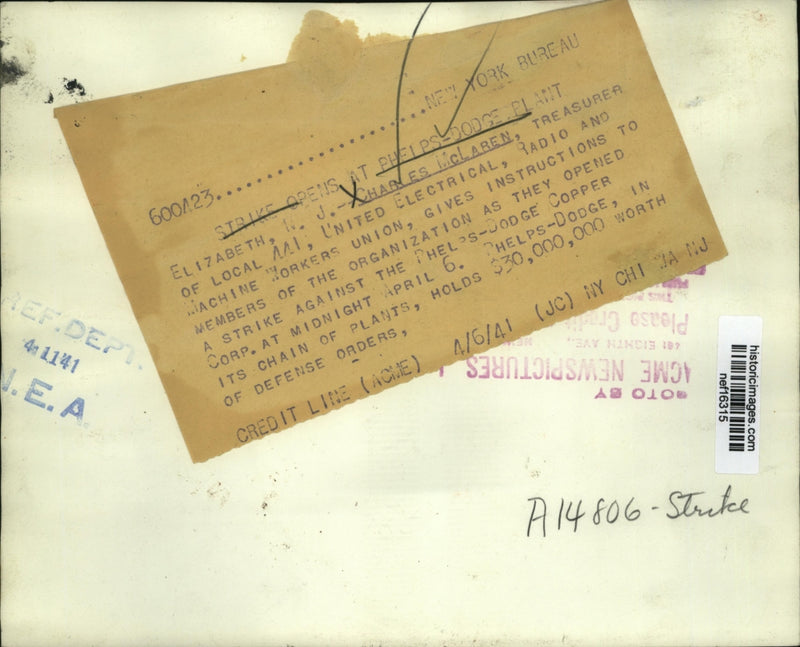 600423........................NEW YORK BUREAU
STRIKE OPENS AT PHELPS-DODGE PLANT
ELIZABETH, N. J.--CHARLES MCLAREN, TREASURER
OF LOCAL 441, UNITED ELECTRICAL, RADIO AND
MACHINE WORKERS UNION, GIVES INSTRUCTIONS TO
MEMBERS OF THE ORGANIZATION AS THEY OPENED
A STRIKE AGAINST THE PHELPS-DODGE COPPER
CORP. AT MIDNIGHT APRIL 6. PHELPS-DODGE, IN
ITS CHAIN OF PLANTS, HOLDS $30,000,000 WORTH
OF DEFENSE ORDERS,
CREDIT LINE (ACME) 4/6/41 (JC) NY CHI WA NJ
REF. DEPT.
4 11 41
N.E.A.
OTO BY
ACME NEWSPICTURES
461 EIGHTH AVE.,
Please Credit
historicimages.com
nef16315
A14806-Strike